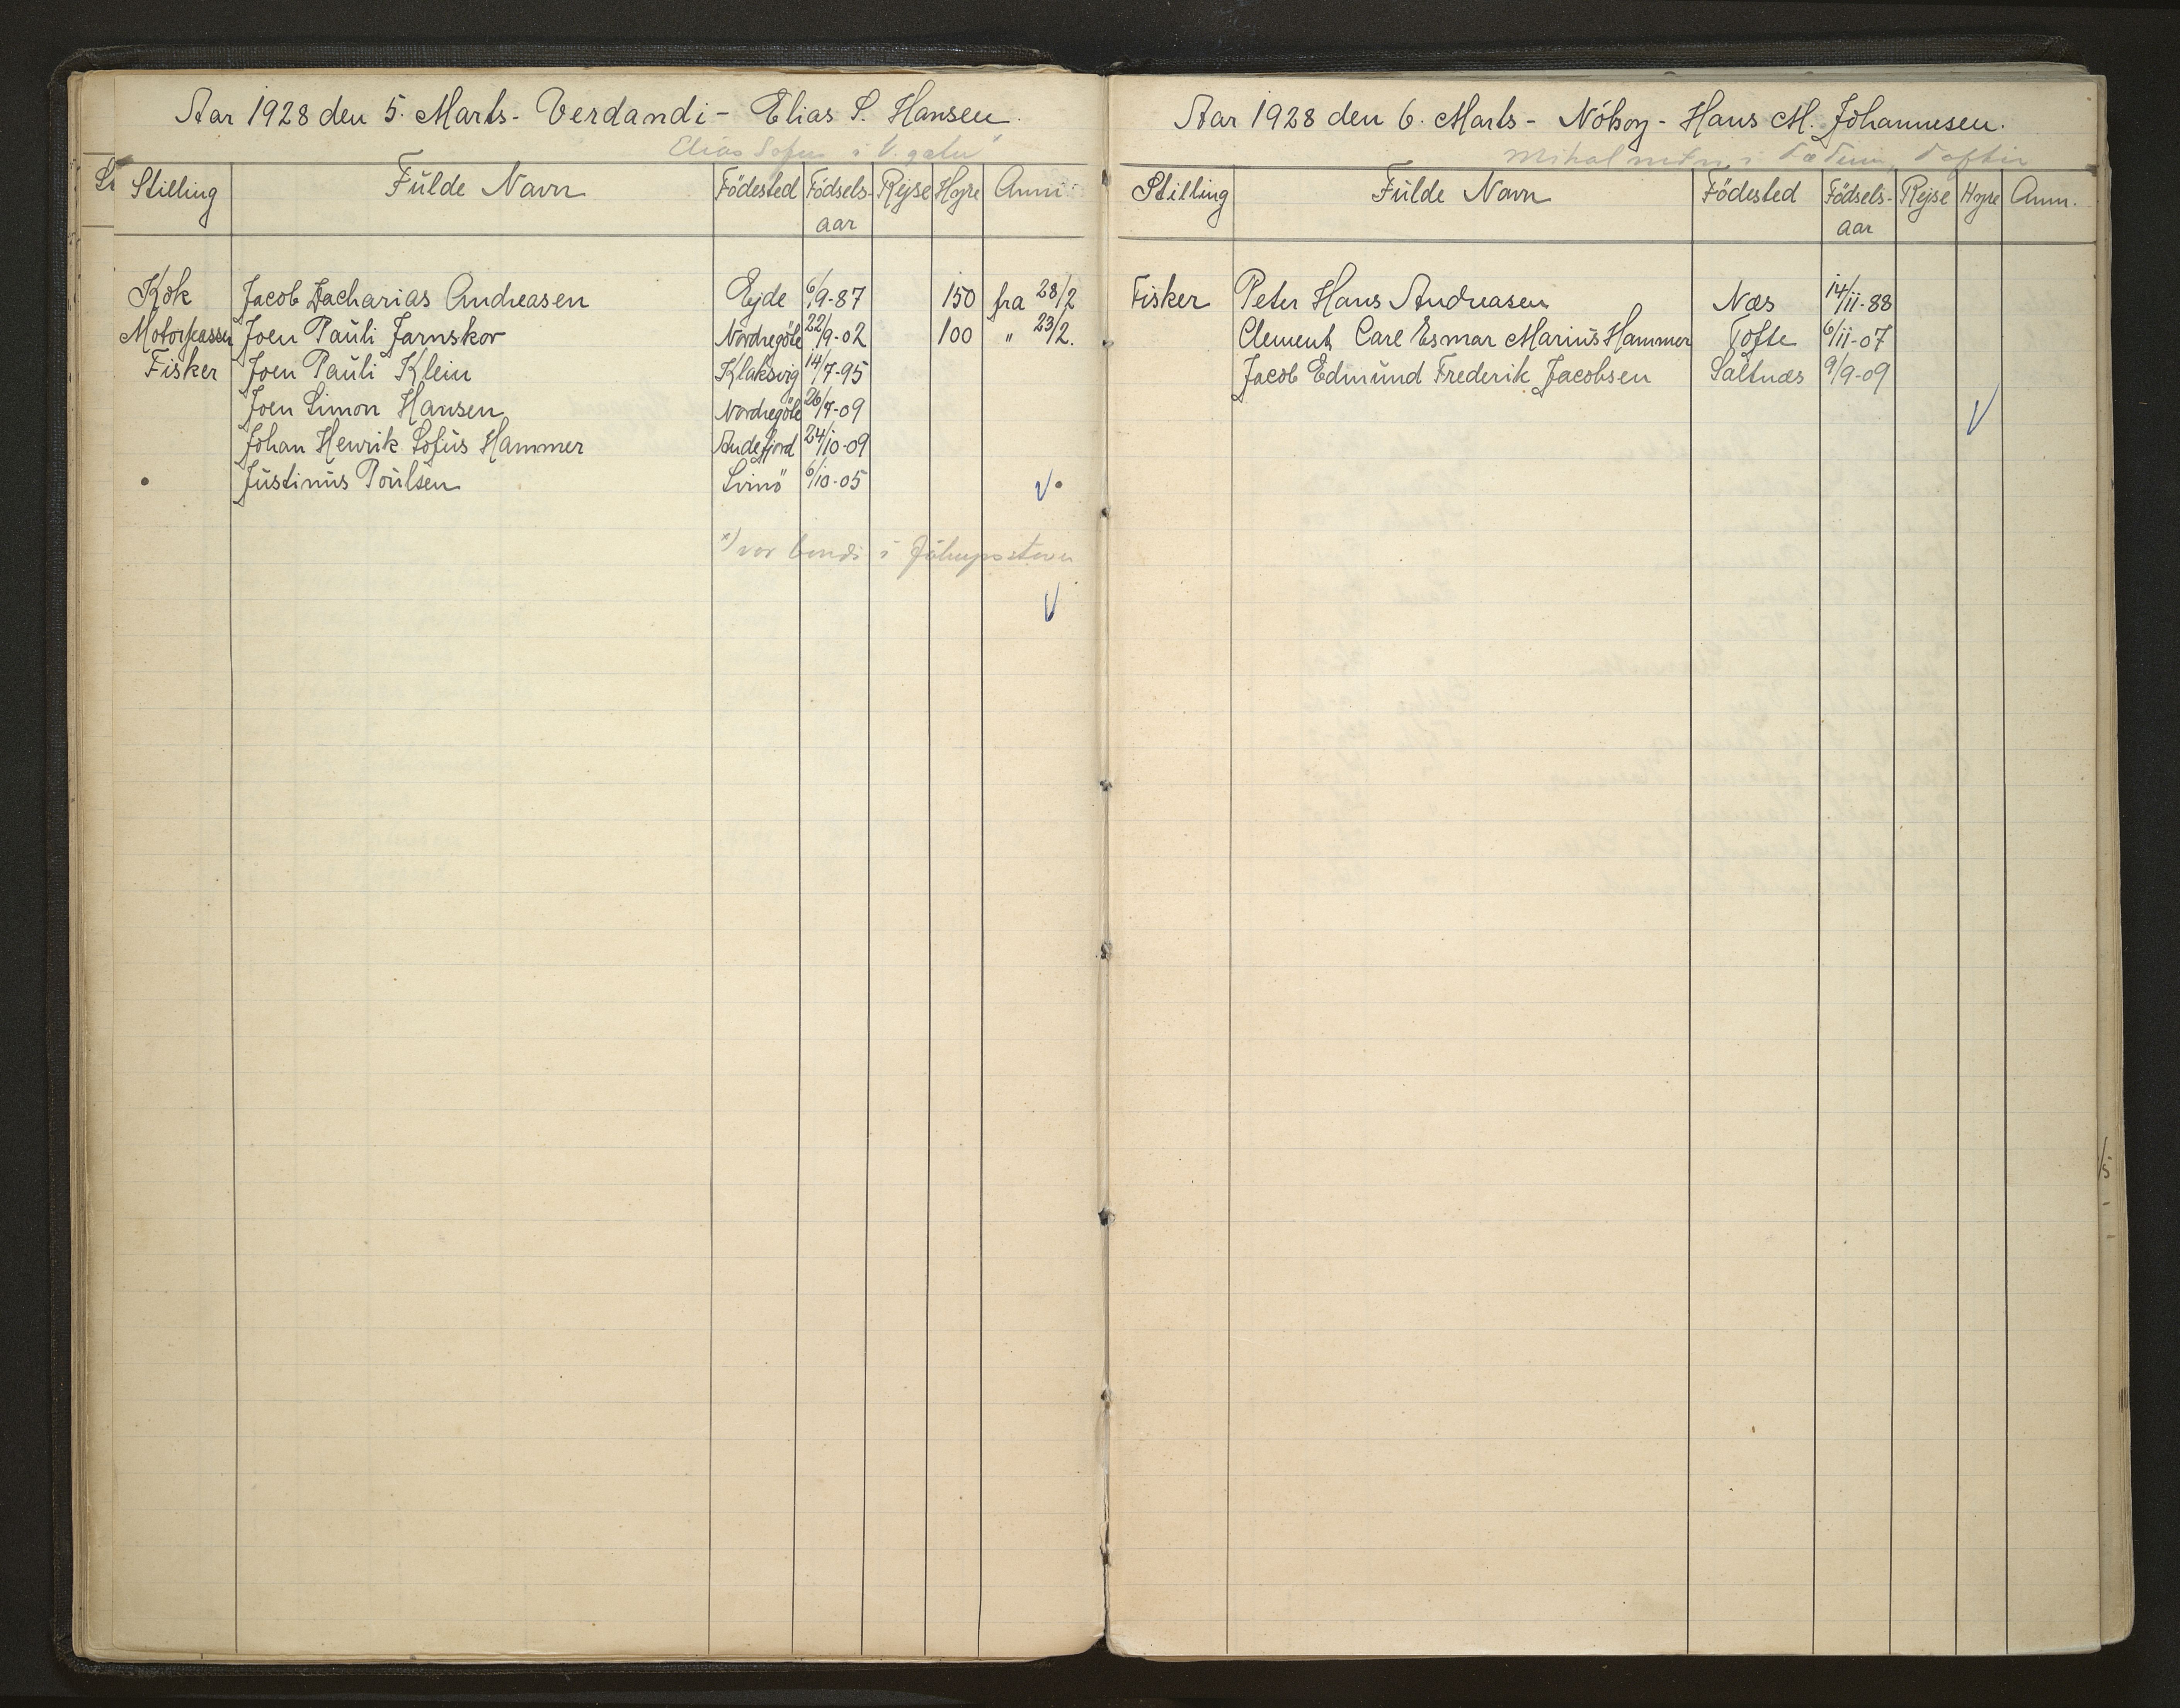 Aar 1928 den 5. Marts - Verdandi - Elias S. Hansen.
Elias Sofus i
St
Stilling Fulde Navn Födested Födsels-aar Rejse Hyre Anm.
Kok Jacob Zacharias Andreasen Ejde 6/9-87 150 fra 28/2
Motorpasser Joen Pauli Jarnskor Nordregöte 22/9-02 100 " 23/2.
Fisker Joen Pauli Klein Klaksvig 14/7-95
Joen Simon Hansen Nordregöte 26/7-09
Johan Henrik Sofus Hammer Andefjord 24/10-09
Justinus Poulsen Svinö 6/10-05
x) var bondi i Jákupsstovu
Aar 1928 den 6. Marts - Nólsoy - Hans M. Johannesen.
i Toftir
Stilling Fulde Navn Födested Födsels-aar Rejse Hyre Anm.
Fisker Peter Hans Andreasen Næs 14/11-88
Clement Carl Esmar Marius Hammer Tofte 6/11-07
Jacob Edmund Frederik Jacobsen Saltnæs 9/9-09